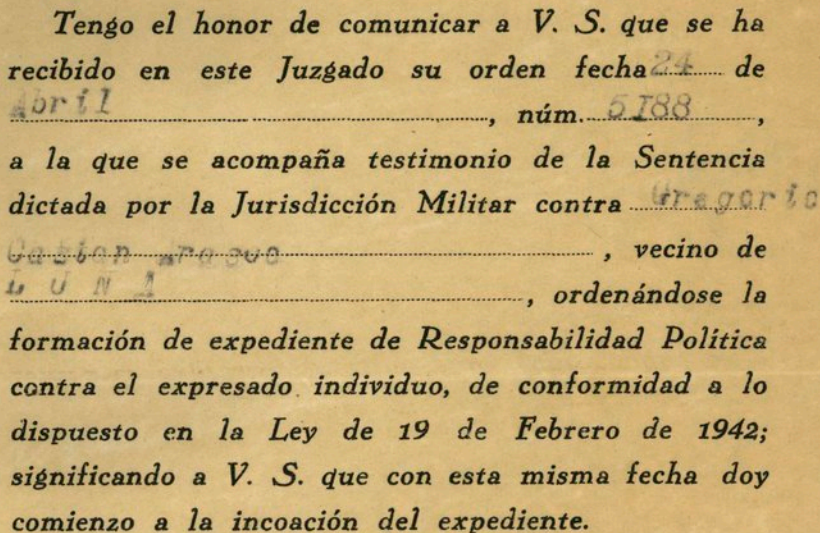 Tengo el honor de comunicar a V. S. que se ha
recibido en este Juzgado su orden fecha 24 de
Abril, núm. 5I88,
a la que se acompaña testimonio de la Sentencia
dictada por la Jurisdicción Militar contra Gregorio
Gaston, vecino de
L U N A, ordenándose la
formación de expediente de Responsabilidad Política
contra el expresado individuo, de conformidad a lo
dispuesto en la Ley de 19 de Febrero de 1942;
significando a V. S. que con esta misma fecha doy
comienzo a la incoación del expediente.